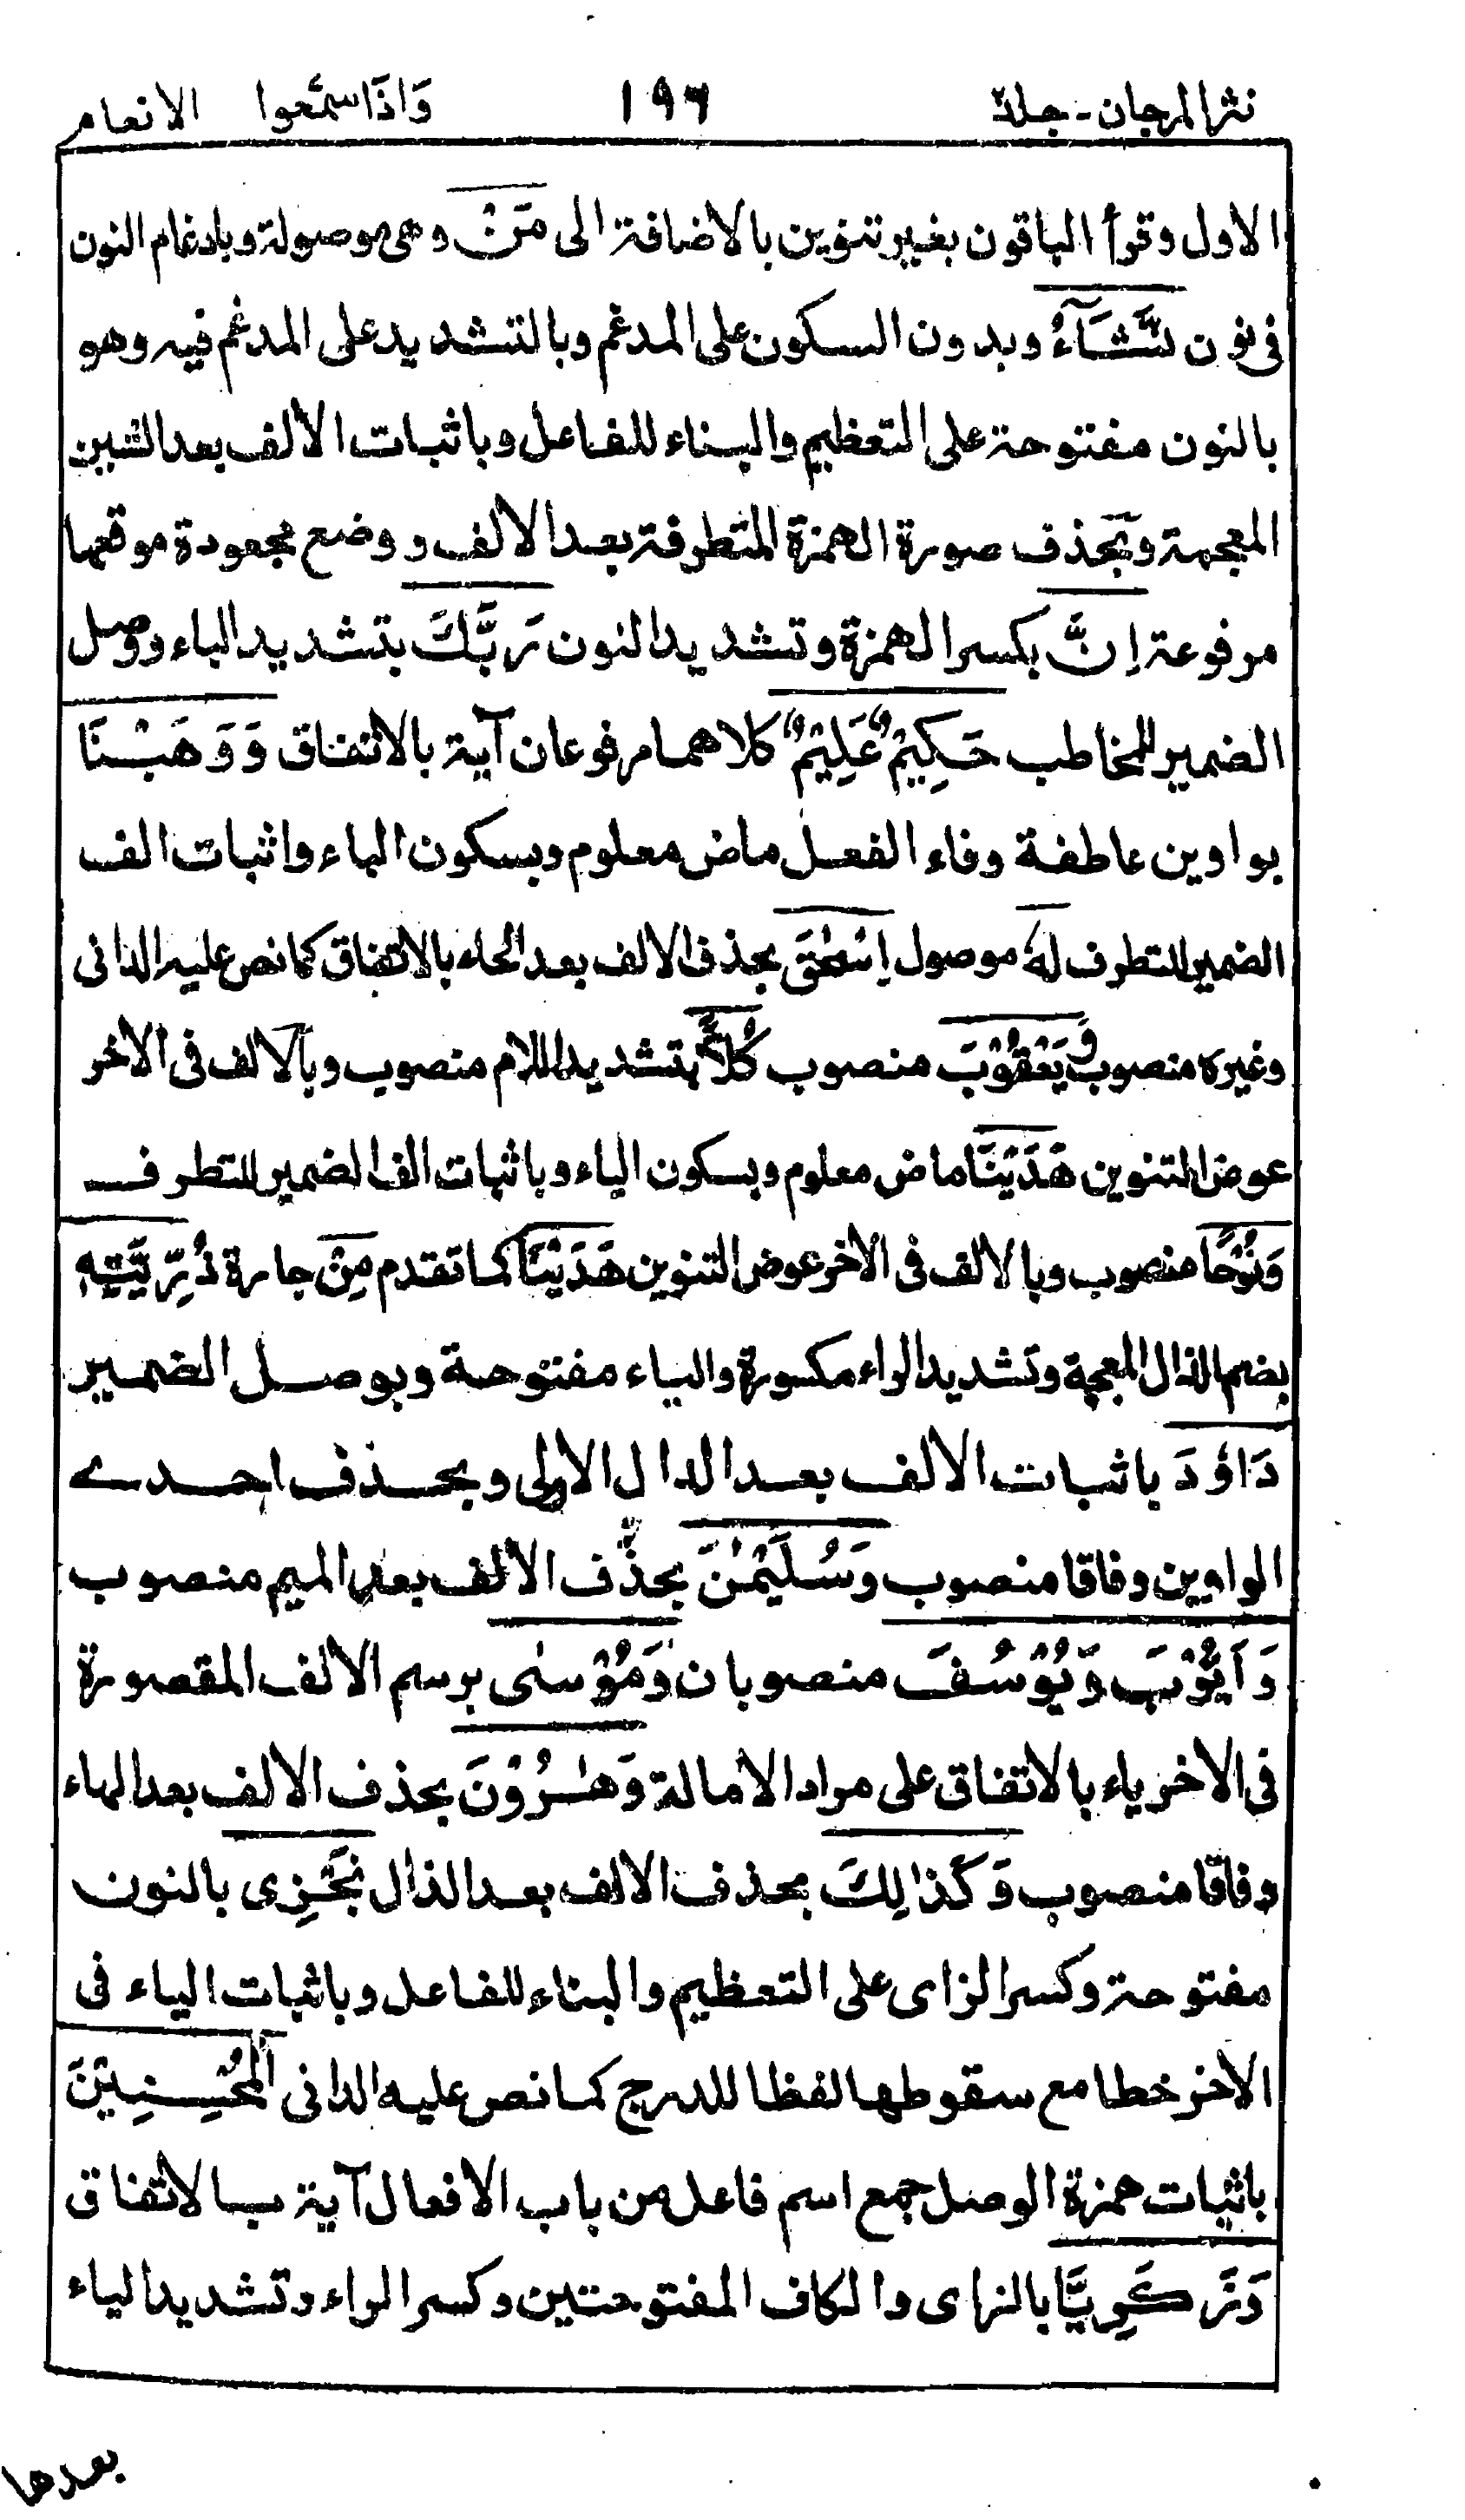 نثر المرجان - جلد ١٩٦ وَاِذَا سَمِعُوا الانعام
الاول وقرأ الباقون بغير تنوين بالاضافة الى مَنْ وهى موصولة وبادغام النون
فى نون نَّشَآءُ وبدون السكون على المدغم وبالتشديد على المدغم فيه وهو
بالنون مفتوحة على التعظيم والبناء للفاعل وباثبات الالف بعد الشين
المعجمة وبحذف صورة الهمزة المتطرفة بعد الالف ووضع مجعودة موقعها
مرفوعة اِنَّ بكسر الهمزة وتشديد النون رَبَّكَ بتشديد الباء ووصل
الضمير للمخاطب حَكِيْمٌ عَلِيْمٌ كلاهما مرفوعان آية بالاتفاق وَوَهَبْنَا
بواوين عاطفة وفاء الفعل ماض معلوم وبسكون الباء واثبات الف
الضمير للتطرف لَهٗ موصول اِسْحٰقَ بحذف الالف بعد الحاء بالاتفاق كما نص عليه الدانى
وغيره منصوب وَيَعْقُوْبَ منصوب كُلًّا بتشديد اللام منصوب وبالالف فى الاخر
عوض التنوين هَدَيْنَا ماض معلوم وبسكون الياء وباثبات الف الضمير للتطرف
وَنُوْحًا منصوب وبالالف فى الاخر عوض التنوين هَدَيْنَا كما تقدم مِنْ جارة ذُرِّيَّتِهٖ
بضم الذال المعجمة وتشديد الراء مكسورة والياء مفتوحة وبوصل الضمير
دَاوٗدَ باثبات الالف بعد الدال الاولى وبحذف احدے
الواوين وفاقا منصوب وَسُلَيْمٰنَ بحذف الالف بعد الميم منصوب
وَاَيُّوْبَ وَيُوْسُفَ منصوبان وَمُوْسٰى برسم الالف المقصورة
فى الاخر ياء بالاتفاق على مراد الامالة وَهٰرُوْنَ بحذف الالف بعد الهاء
وفاقا منصوب وَكَذٰلِكَ بحذف الالف بعد الذال نَجْزِى بالنون
مفتوحة وكسر الزاى على التعظيم والبناء للفاعل وباثبات الياء فى
الاخر خطا مع سقوطها لفظا للدرج كما نص عليه الدانى الْمُحْسِنِيْنَ
باثبات همزة الوصل جمع اسم فاعل من باب الافعال آية بالاتفاق
وَزَكَرِيَّا بالزاى والكاف المفتوحتين وكسر الراء وتشديد الياء
بعدها